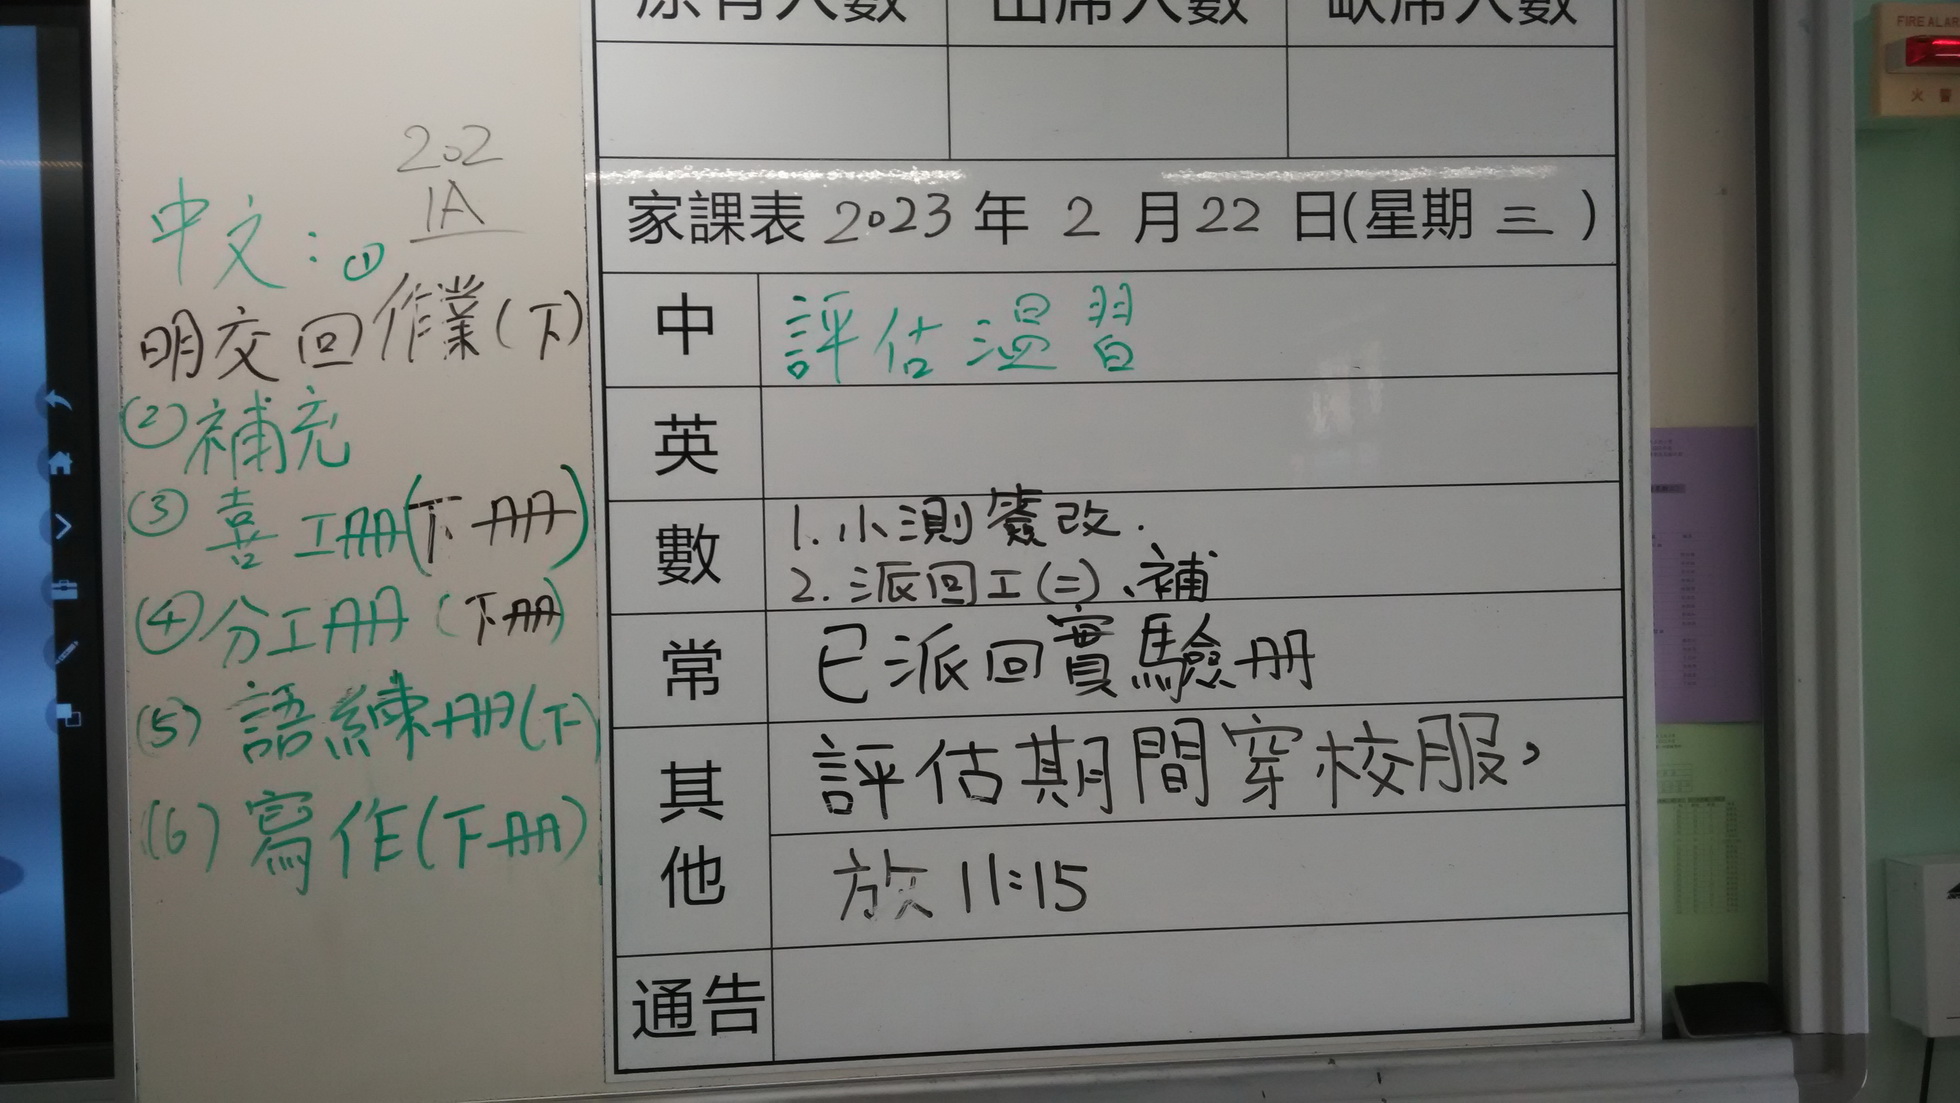 原有人數 出席人數 缺席人數
家課表 2023 年 2 月 22 日(星期 三 )
中 評估溫習
英
數 1. 小測簽改.
2. 派回工(二)、補
常 已派回實驗冊
其他 評估期間穿校服,
放 11:15
通告
202
1A
中文:①
明交回作業(下)
(2)補充
(3) 喜工冊(下冊)
(4)分工冊(下冊)
(5) 語練冊(下)
(6) 寫作(下冊)
FIRE ALAR
火 警